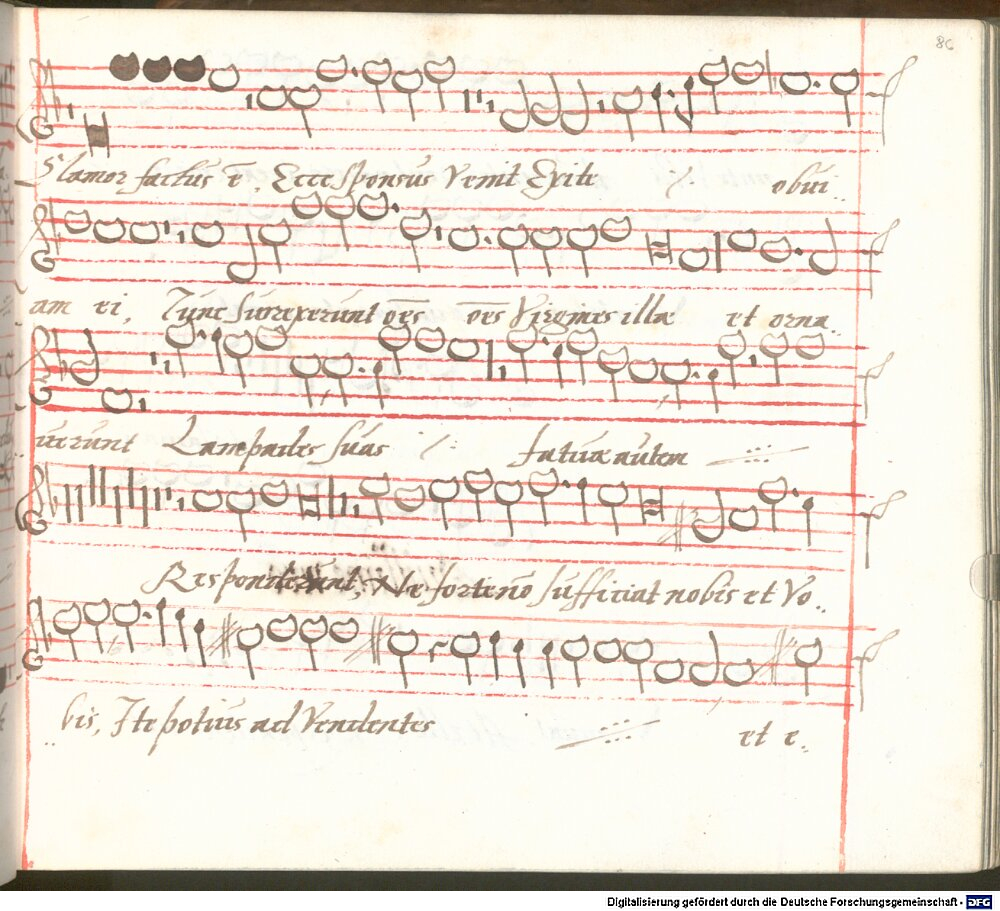 86
Clamor factus ē, Ecce Sponsus Venit Exite ·/· obui
am ei, Tunc surrexerunt oēs oēs Virgines illæ et orna
uerunt Lampades suas ·/· fatuæ autem
Responderunt, Ne forte nō sufficiat nobis et Vo
bis, Ite potius ad Vendentes et e
Digitalisierung gefördert durch die Deutsche Forschungsgemeinschaft - DFG